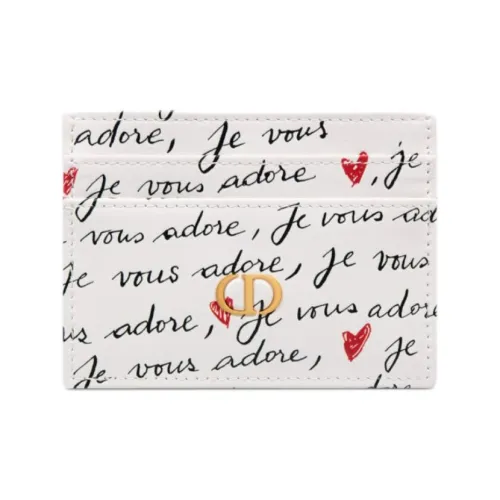 adore, je vous
je vous adore, je
vous adore, je vous a
je vous adore, je vous
vous adore, je vous ado
je vous adore, je
adore
CD